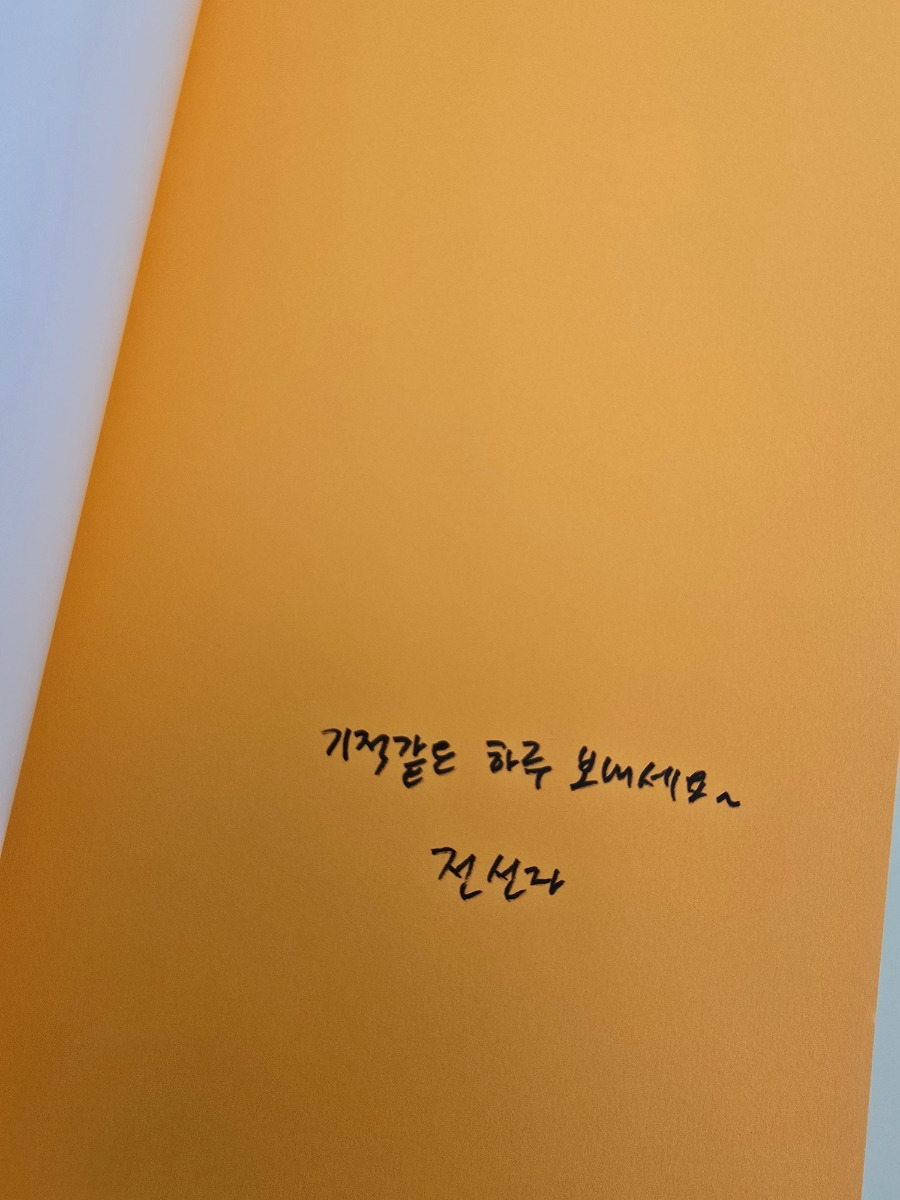 기적같은 하루 보내세요~
전선라